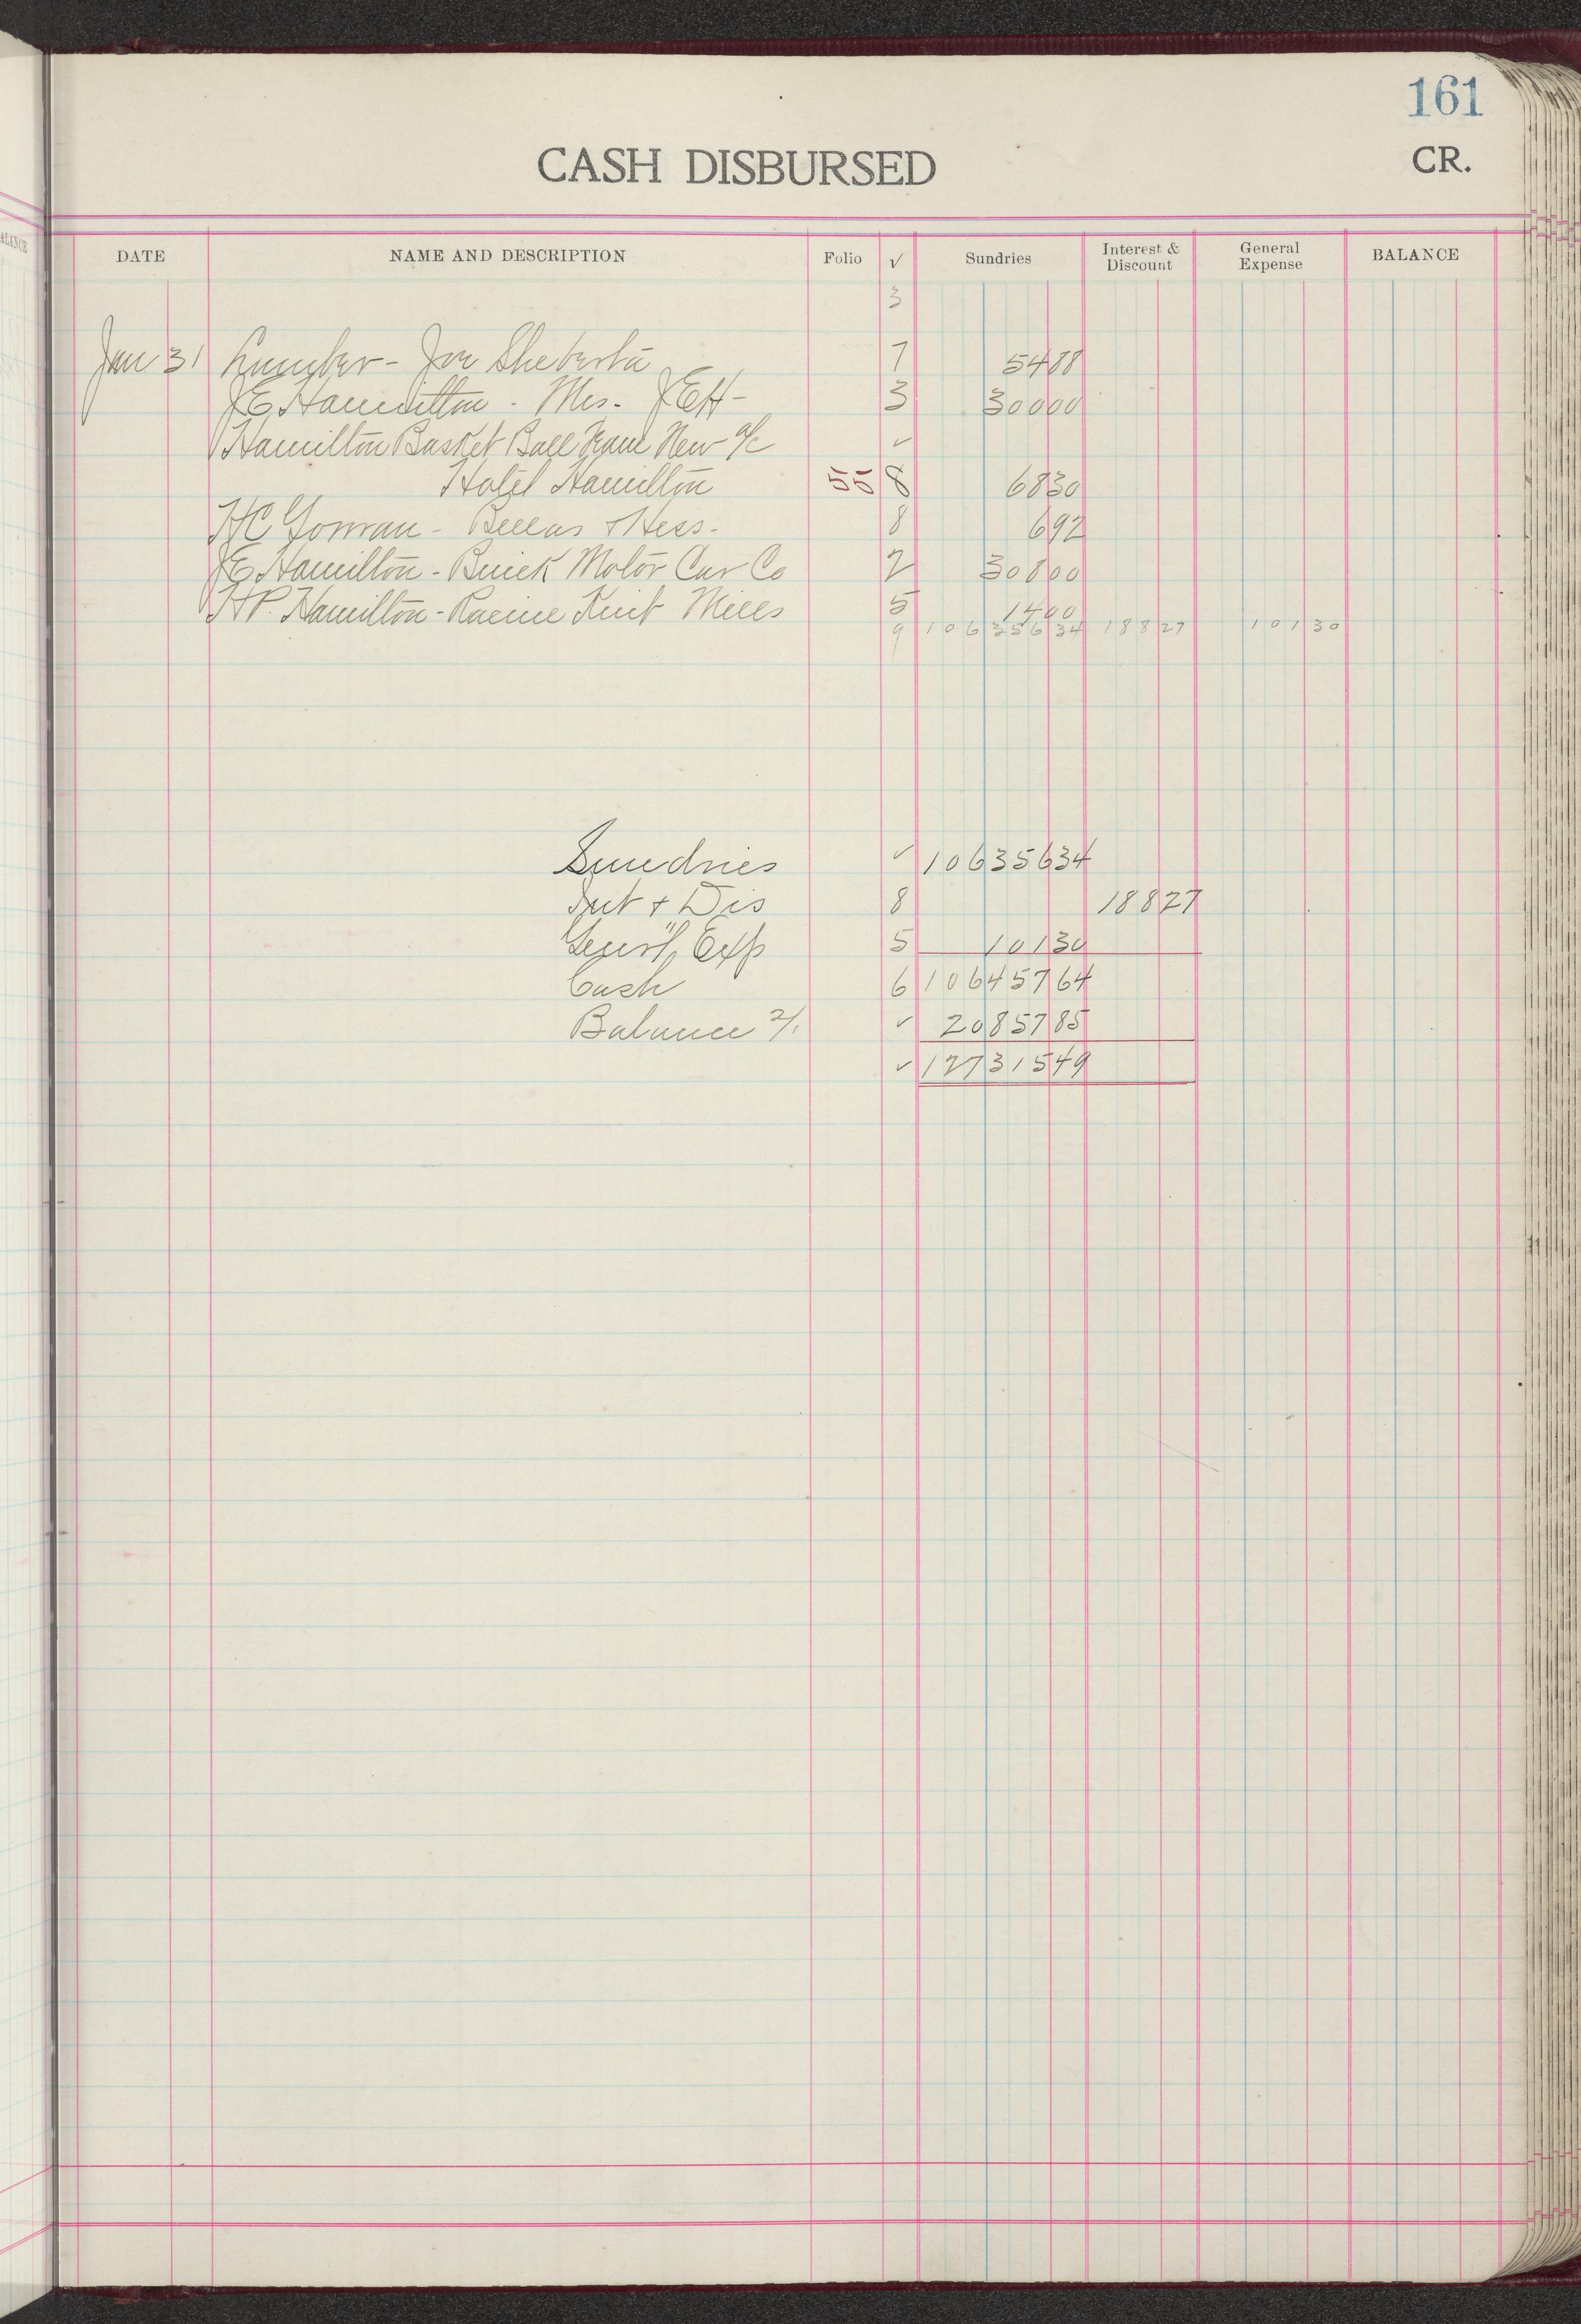 161
CASH DISBURSED
CR.
DATE NAME AND DESCRIPTION Folio √ Sundries Interest & Discount General Expense BALANCE
3
Jan 31 Lumber - Joe Sheberta 7 5488
JE Hamilton - Mrs. JEH - 3 30000
Hamilton Basket Ball Team New a/c ✓
Hotel Hamilton 55 8 6830
HC Gorman - Bellas & Hess. 8 692
JE Hamilton - Buick Motor Car Co 2 30800
HP. Hamilton - Racine Knit Mills 5 1400
9 10635634 18827 10130
Sundries ✓ 10635634
Int + Dis 8 18827
Genr'l Exp 5 10130
Cash 6 10645764
Balance 2/1 ✓ 2085785
✓ 12731549